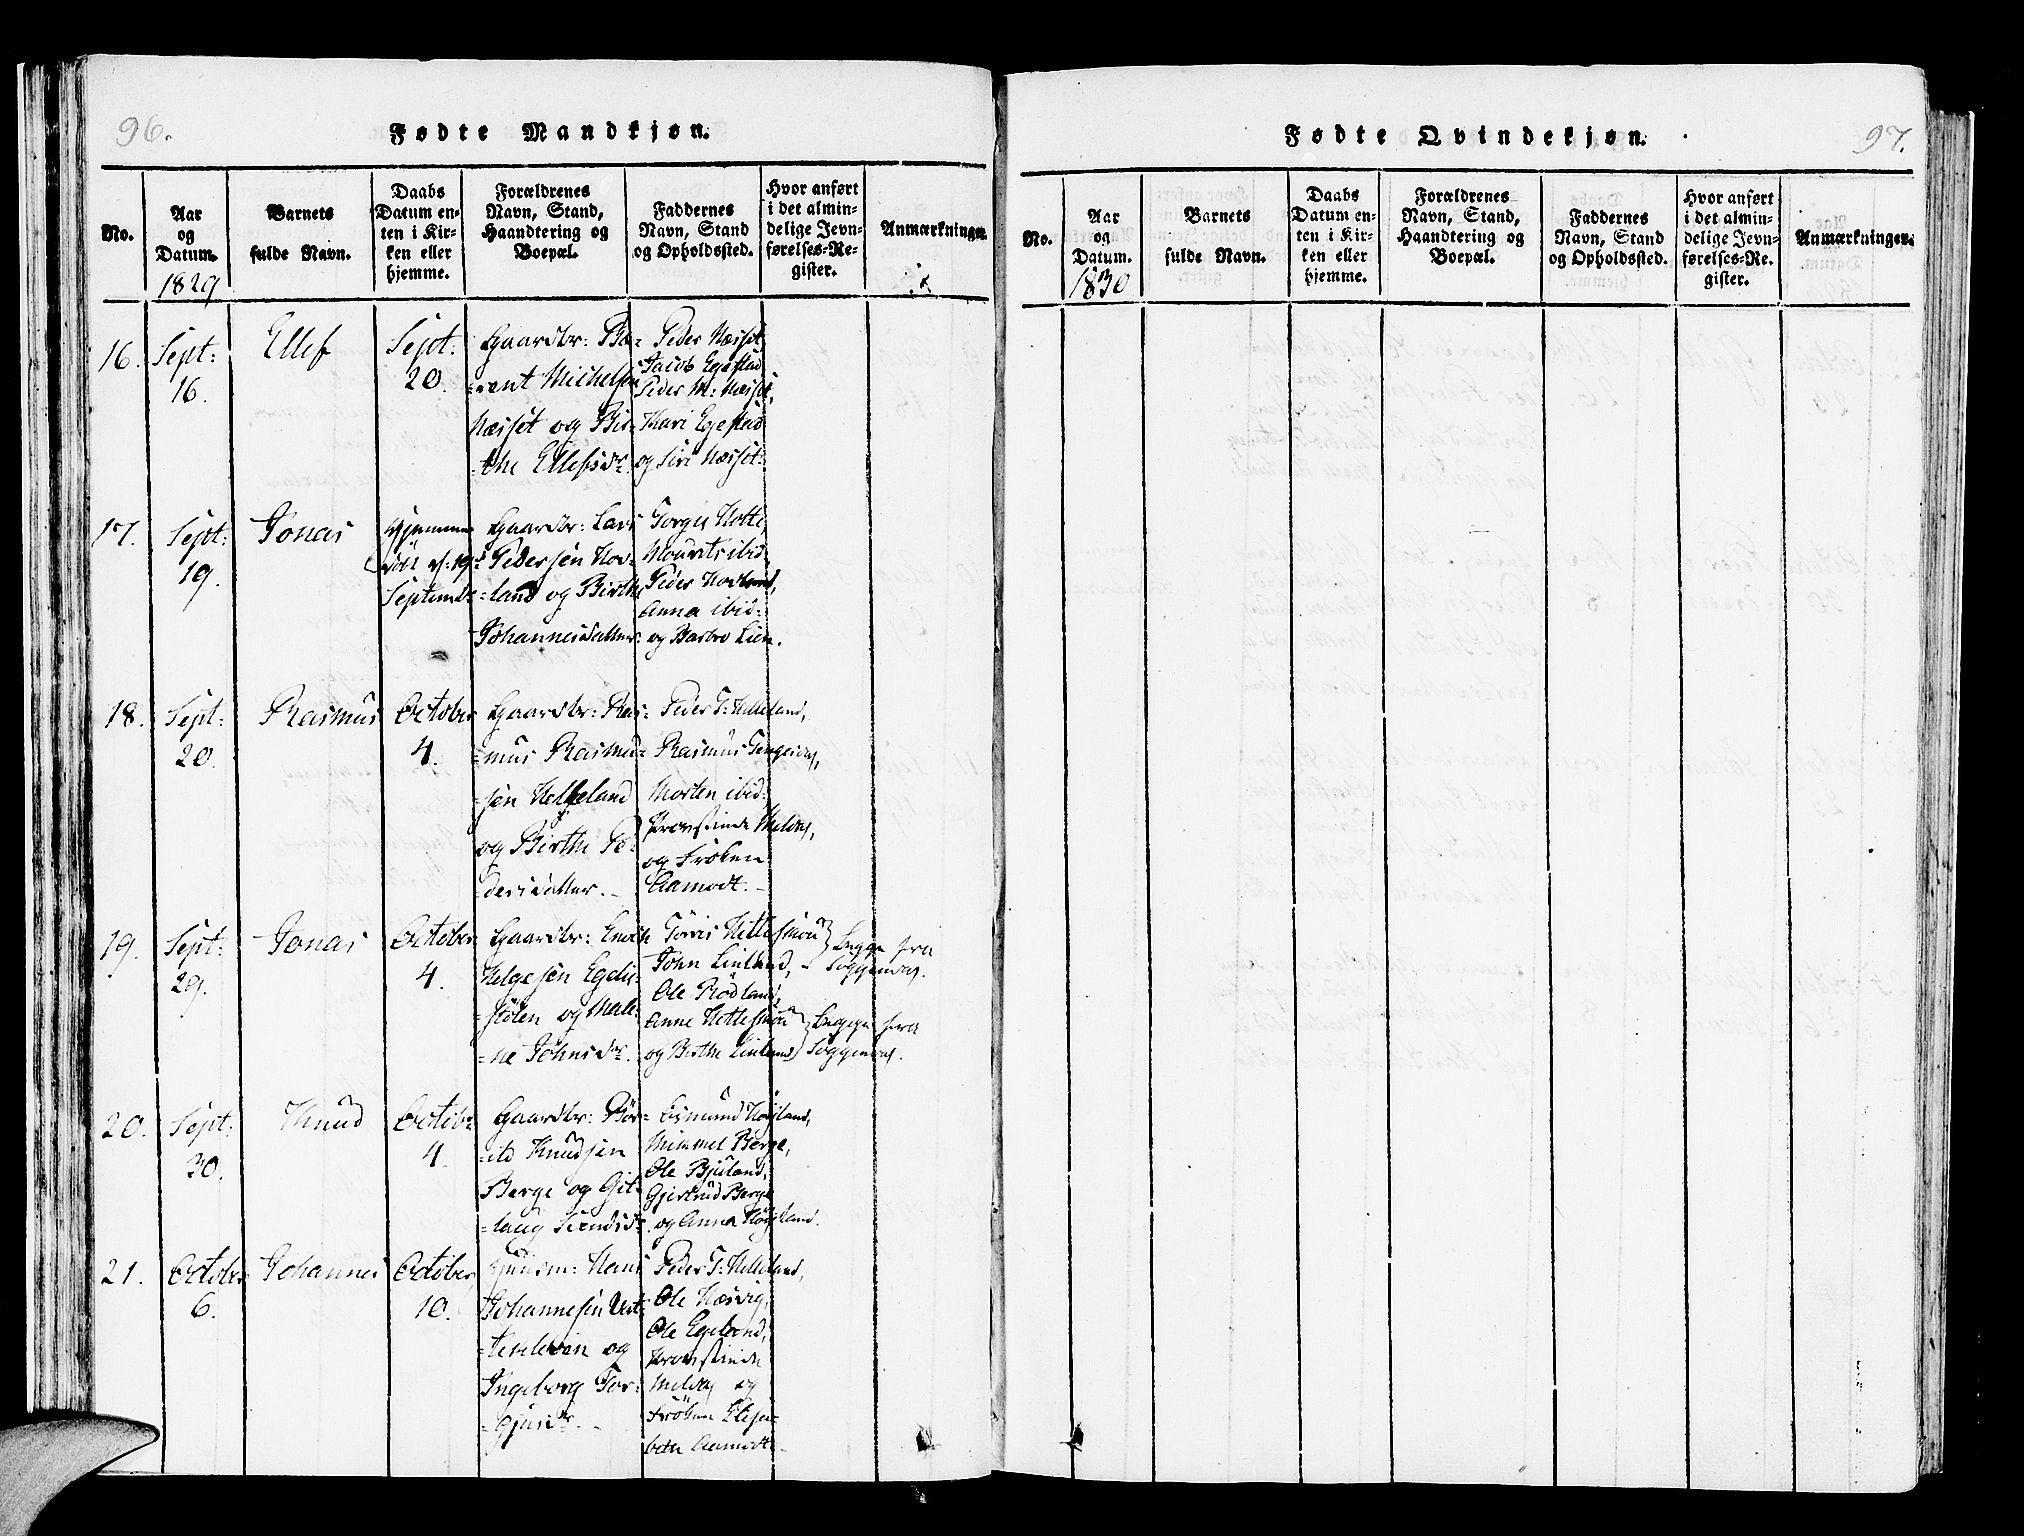 96.
Fødte Mandkjøn.
No.
Aar
og
Datum.
1829
Barnets
fulde Navn.
Daabs
Datum en-
ten i Kir-
ken eller
hjemme.
Forældrenes
Navn, Stand,
Haandtering og
Boepæl.
Faddernes
Navn, Stand
og Opholdssted.
Hvor anført
i det almin-
delige Jevn-
førelses-Re-
gister.
Anmærkninger.
16.
Sept:
16.
Ellef
Sept:
20.
Gaardbr: Be-
=rent Michelsen
Næsset og Bir-
=the Ellefsdr.
Peder Næsset,
Jacob Egestad
Peder M: Næsset,
Kari Egestad
og Siri Næsset.
17.
Sept:
19.
Jonas
Hjemme
døbt d: 19de
Septembr
Gaardbr: Lars
Pedersen Hov-
=land og Birthe
Johannesdatter.
Torgis
Mourits ibid:
Peder Hovland,
Anna ibid:
og Barbro Lien.
18.
Sept:
20.
Rasmus
October
4.
Gaardbr: Ras-
=mus Rasmus-
=sen Helleland
og Birthe Pe-
=dersdatter.
Peder T: Helleland,
Rasmus Tengesdal,
Morten ibid:
Provstinde Meldal,
og Frøken
Aamodt.
19.
Sept:
29.
Jonas
October
4.
Gaardbr: Enoch
Helgesen Egelis-
=stølen og Male-
=ne Johnsdr.
Tørris Hettesmou
John Linland,
Ole Rødland,
Anne Hettesmou
og Birthe Linland
Begge fra
Soggendal.
Begge fra
Soggendal.
20.
Sept:
30.
Knud
Octobr
4.
Gaardbr: Bør-
=ild Knudsen
Berge og Git-
=laug Svendsdr.
Osmund Høyland,
Mimmel Berge,
Ole Bjuland,
Gjertrud Berge
og Anna Høyland.
21.
October
6.
Johannes
October
10.
Huusm: Hans
Johannesen
og
Ingeborg Tor-
=gjusdr.
Peder T: Helleland,
Ole Hæsvig,
Ole Egeland,
Provstinde
Meldal og
Frøken Elisa-
beth Aamodt.
Fødte Qvindekjøn.
97.
No.
Aar
og
Datum.
1830
Barnets
fulde Navn.
Daabs
Datum en-
ten i Kir-
ken eller
hjemme.
Forældrenes
Navn, Stand,
Haandtering og
Boepæl.
Faddernes
Navn, Stand
og Opholdssted.
Hvor anført
i det almin-
delige Jevn-
førelses-Re-
gister.
Anmærkninger.